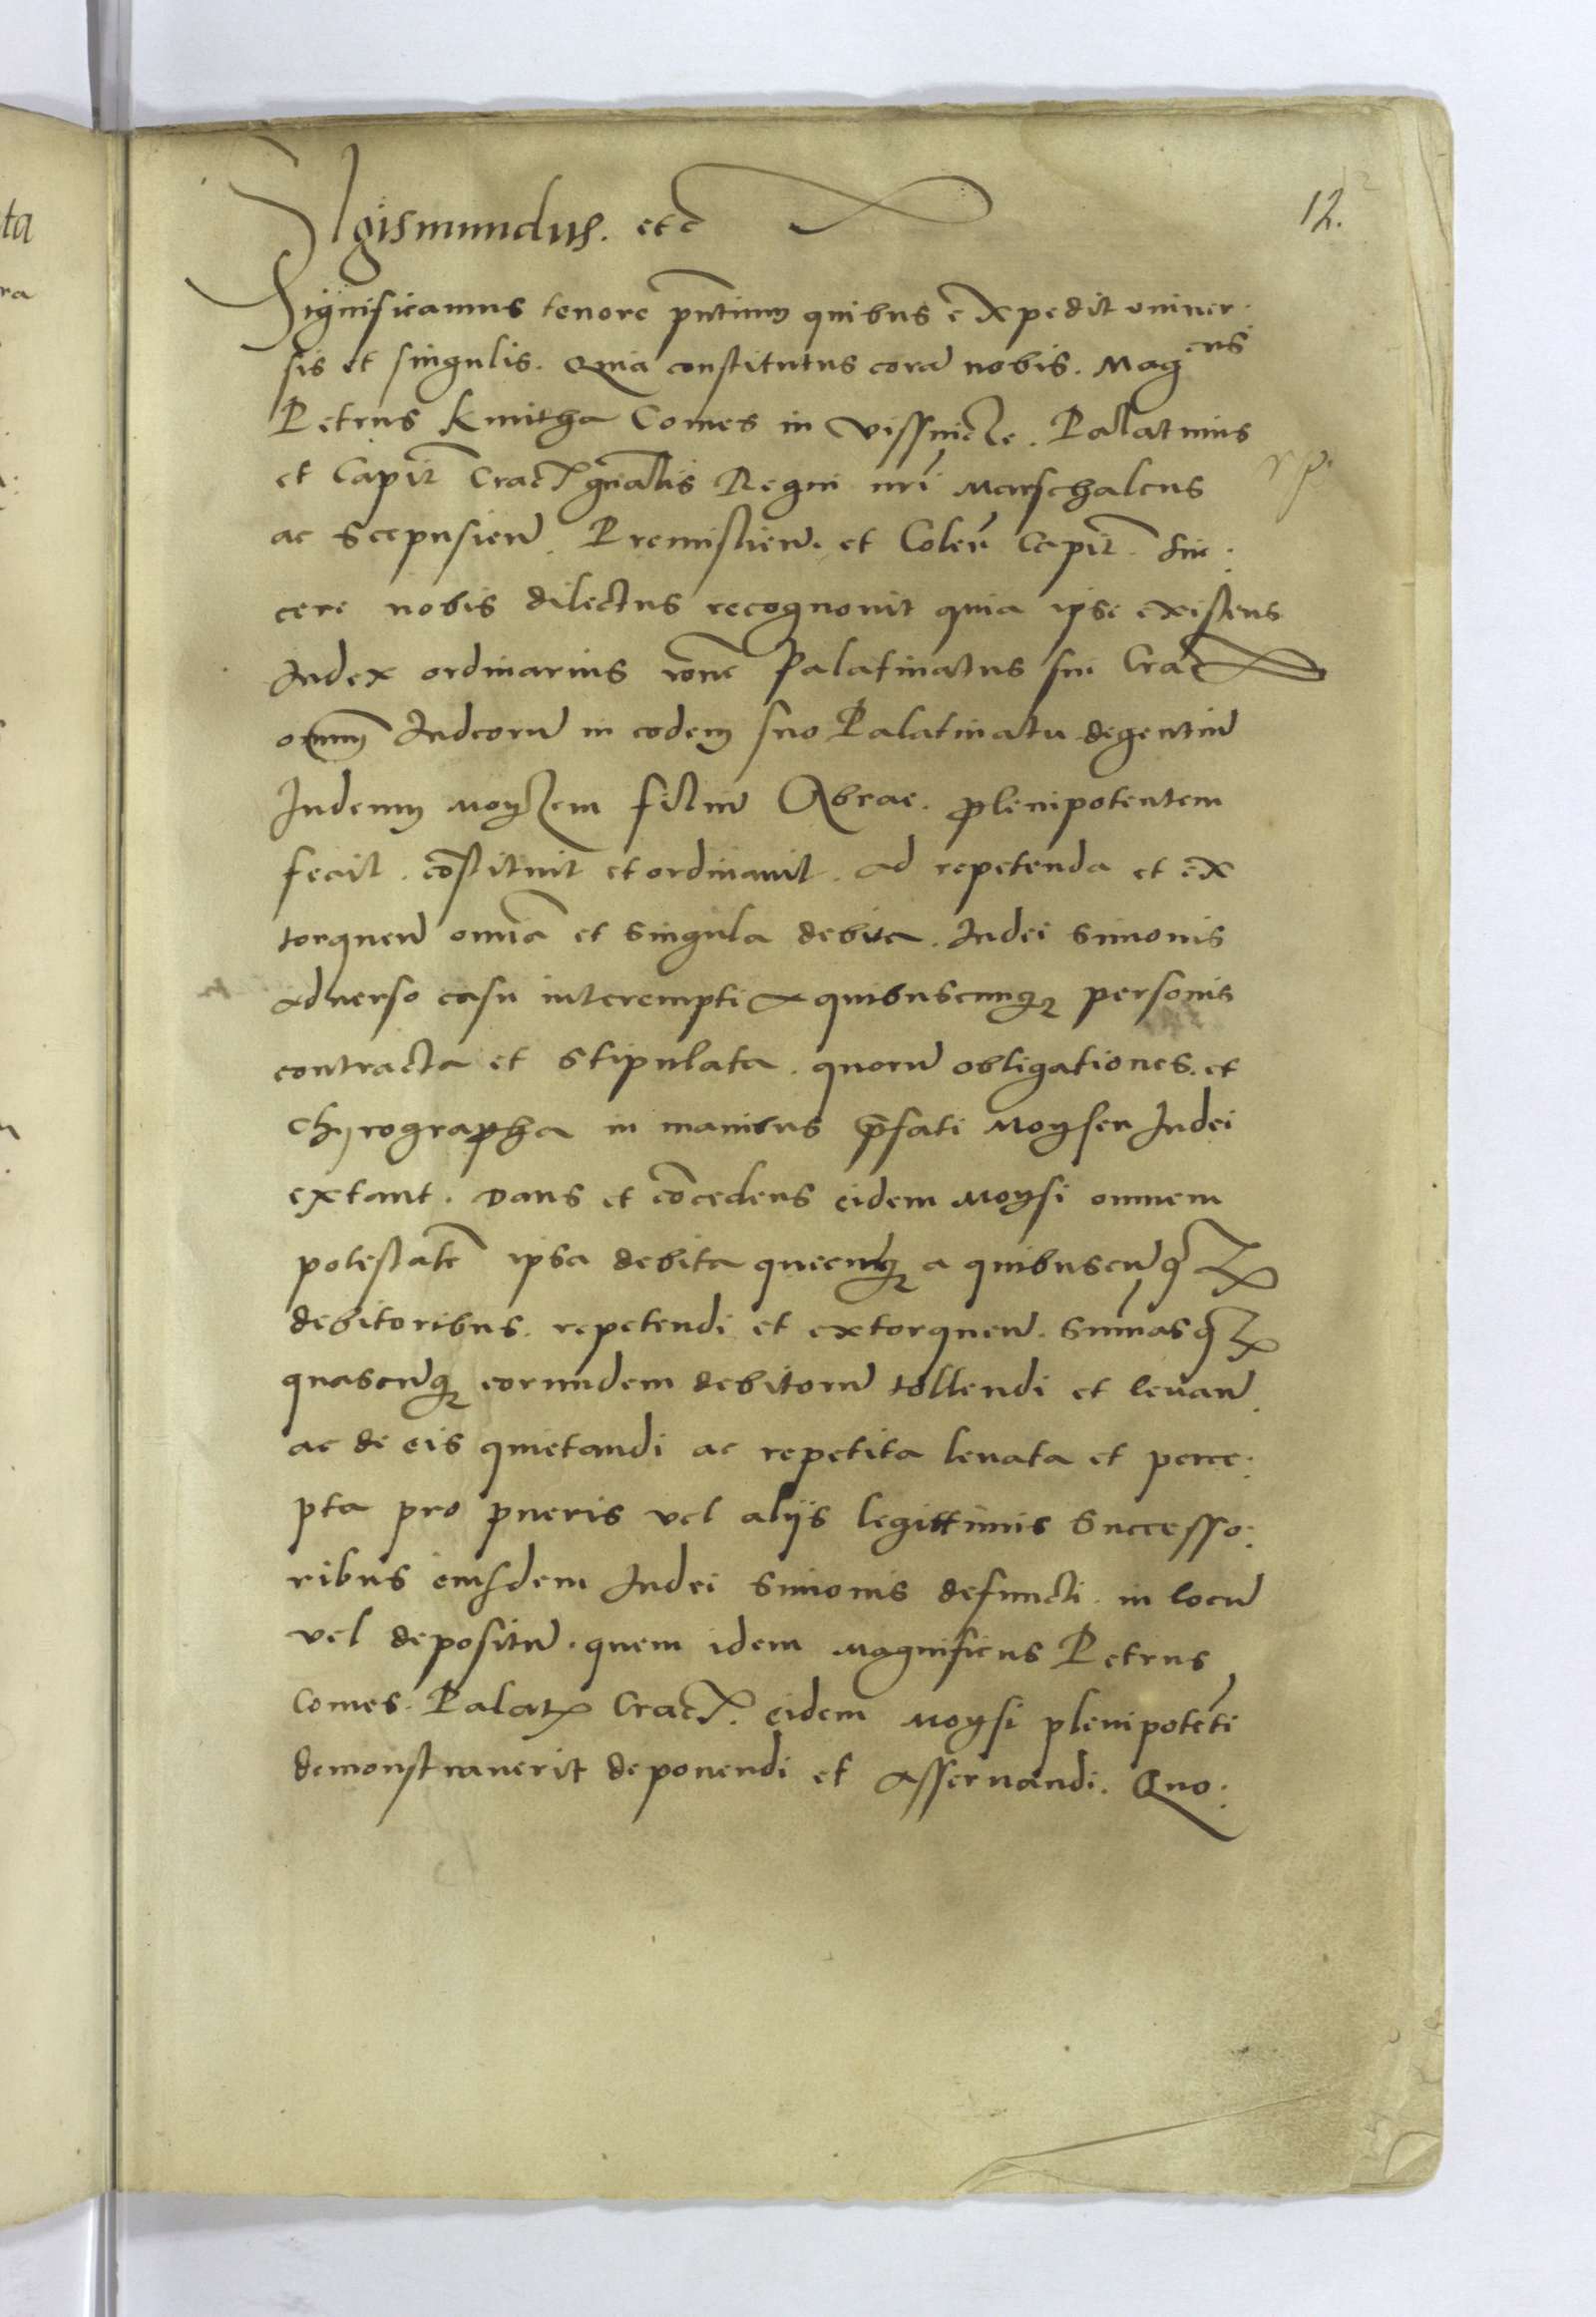 12.
Sigismundus. etc
Significamus tenore pñtium quibus expedit univer:
sis et singulis. Quia constitutus corã nobis. Mag^cus
Petrus Kmitha Comes in Vissnicze. Palatinus
et Capit Crac gñalis Regni nrĩ Marschalcus
ac Scepusieñ. Premislieñ. et Coleñ Capit. Sin:
cere nobis dilectus recognovit quia ipse existens
Iudex ordinarius rõne Palatinatus sui Crac
omniũ Iudeorũ in eodem suo Palatinatu degentiũ
Iudeum Moyzem filiũ Abrae. plenipotentem
fecit. cõstituit et ordinavit. ad repetenda et ex
torqueñ omnia et singula debita. Iudei Simonis
adverso casu interempti a quibuscunq; personis
contracta et stipulata. quorũ obligationes. et
Chyrographa in manibus p̃fati Moysen Iudei
extant. Dans et cõcedens eidem Moysi omnem
potestatẽ ipsa debita quecunq; a quibuscũq;
debitoribus. repetendi et extorqueñ. Sum̃asq;
quascũq; eorundem debitorũ tollendi et levañ.
ac de eis quietandi ac repetita levata et perce:
pta pro pueris vel aliis legittimis Successo:
ribus eiusdem Iudei Simonis defuncti. in locũ
vel depositũ. quem idem Magnificus Petrus
Comes. Palat Crac. eidem Moysi plenipotẽti
demonstraverit deponendi et asservandi. Quo: